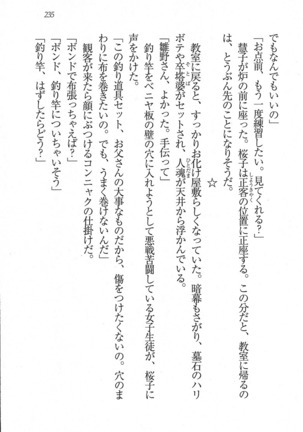 235
でもなんでもいいの」
「お点前、もう一度練習したい。見てくれる？」
慧子が炉の前に座った。桜子は正客の位置に正座する。この分だと、教室に帰るの
は、とうぶん先のことになりそうだ。
☆
教室に戻ると、すっかりお化け屋敷らしくなっていた。暗幕もさがり、墓石のハリ
ボテや卒塔婆がセットされ、人魂が天井から浮かんでいる。
「雛野さん、よかった。手伝って」
釣り竿をベニヤ板の壁の穴に入れようとして悪戦苦闘している女子生徒が、桜子に
声をかけた。
「この釣り道具セット、お父さんの大事なものだから、傷をつけたくないの。穴のま
わりに布を巻きたいの。でも、うまく巻けないんだ」
観客が来たら顔にぶつけるコンニャクの仕掛けだ。
「ボンドで布張っちゃえば？」
「ボンド、釣り竿についちゃいそう」
「釣り竿、はずしたらどう？」